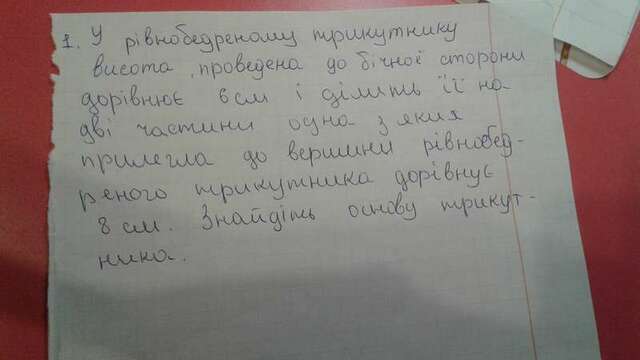 1. У рівнобедреному трикутнику
висота, проведена до бічної сторони
дорівнює 6 см і ділить її на
дві частини одна з яких
прилегла до вершини рівнобед-
реного трикутника дорівнує
8 см. Знайдіть основу трикут-
ника.